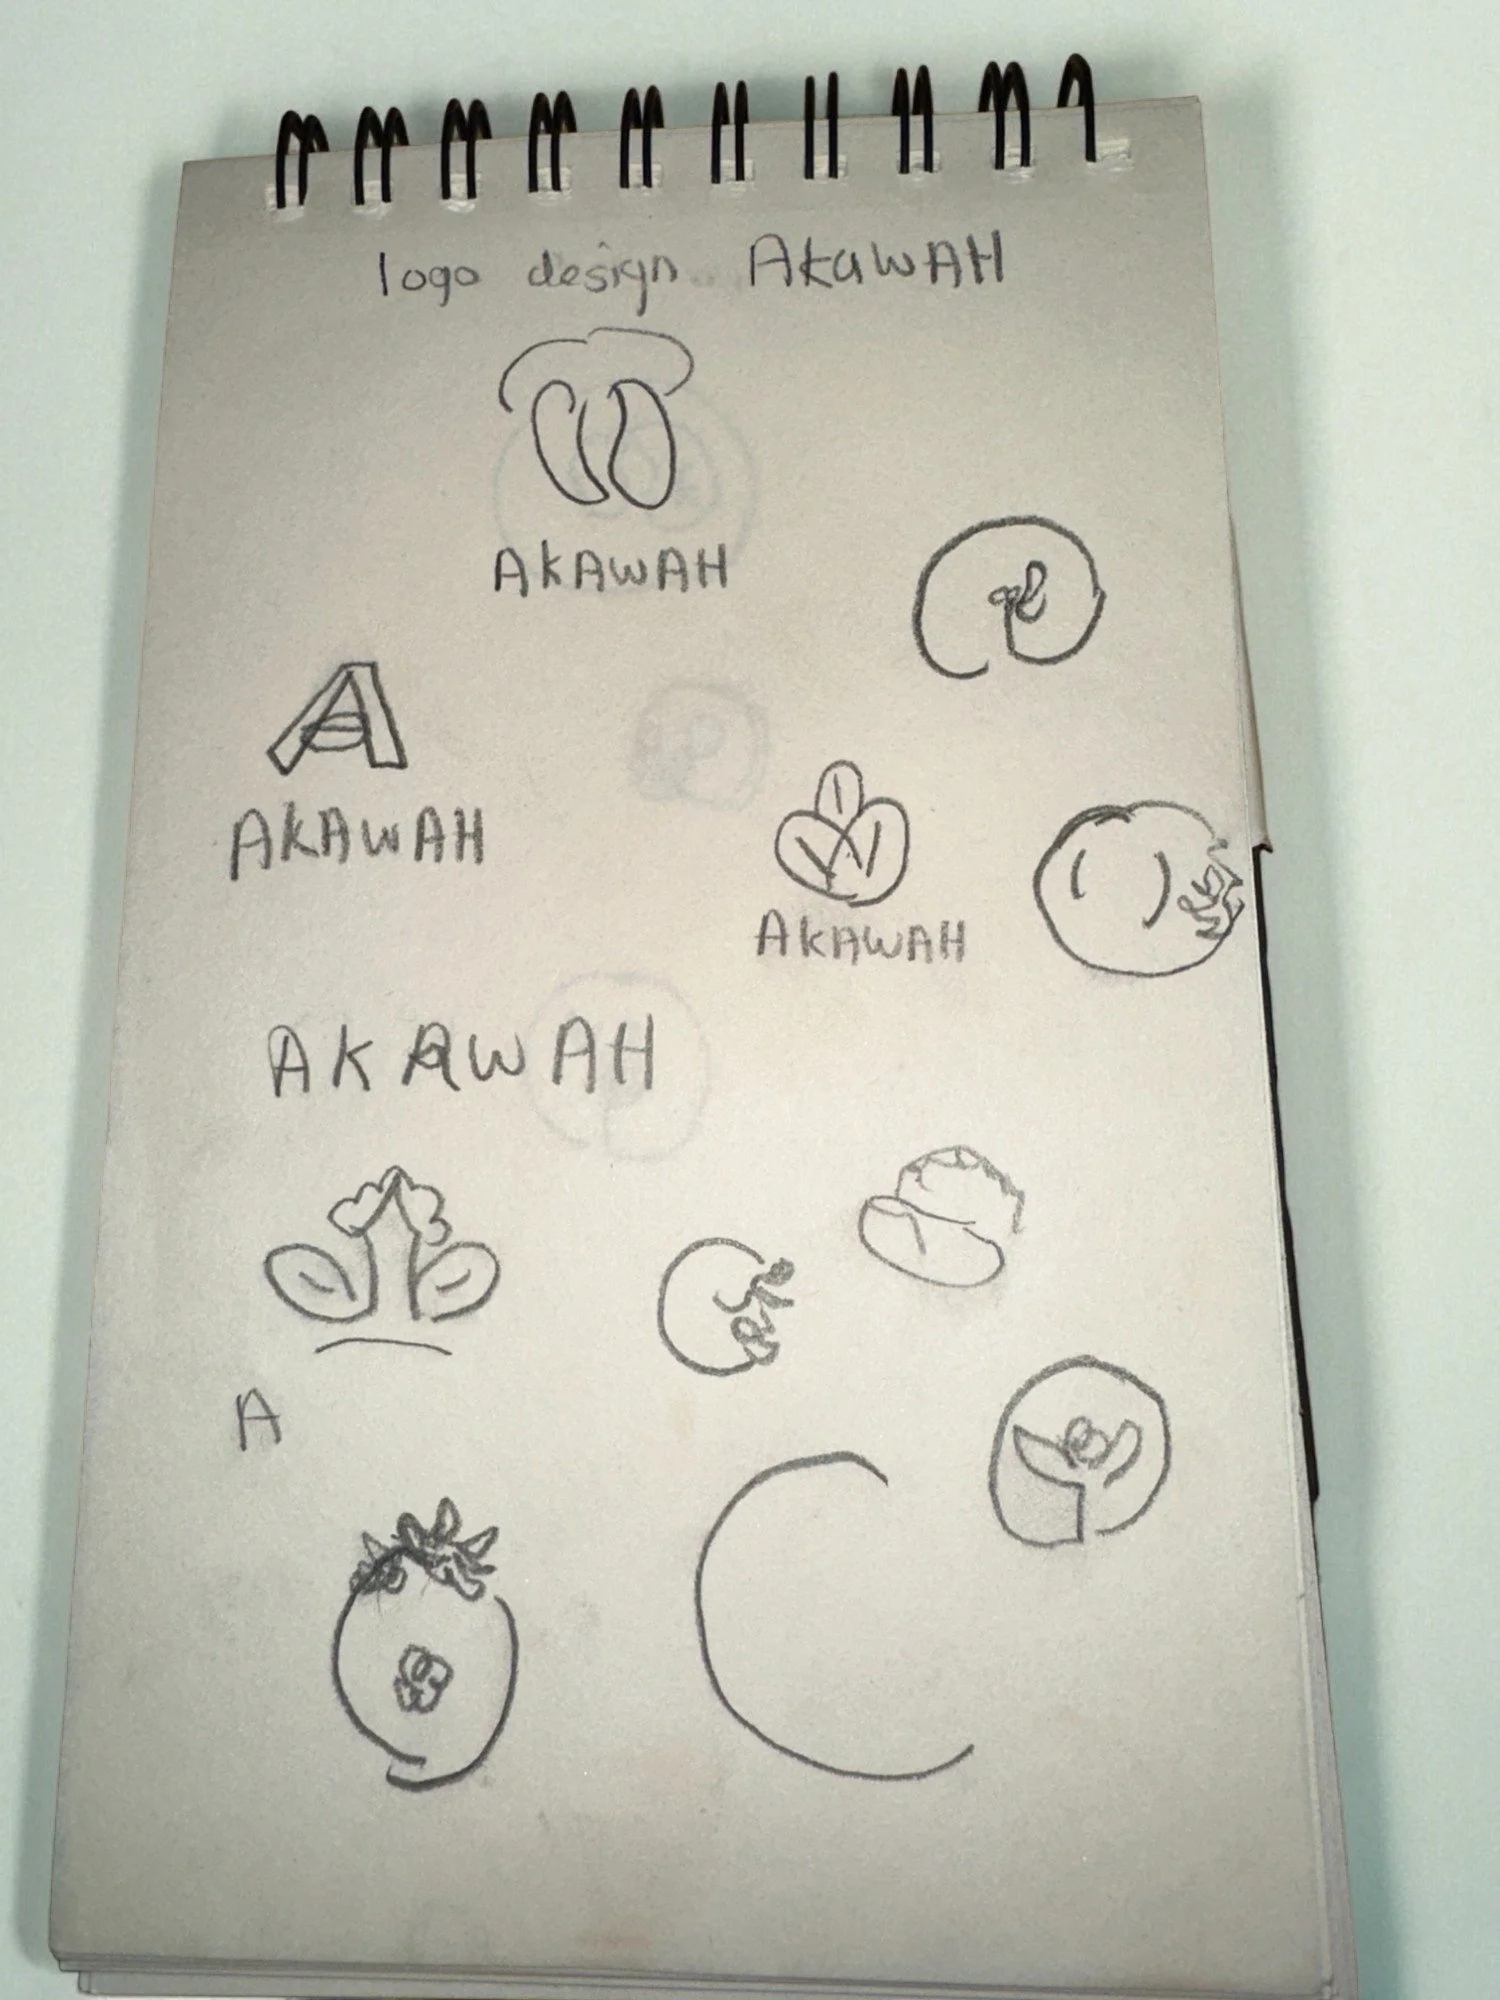 logo design AKaWAH
AKAWAH
A
AKAWAH
AKAWAH
AKAWAH
A